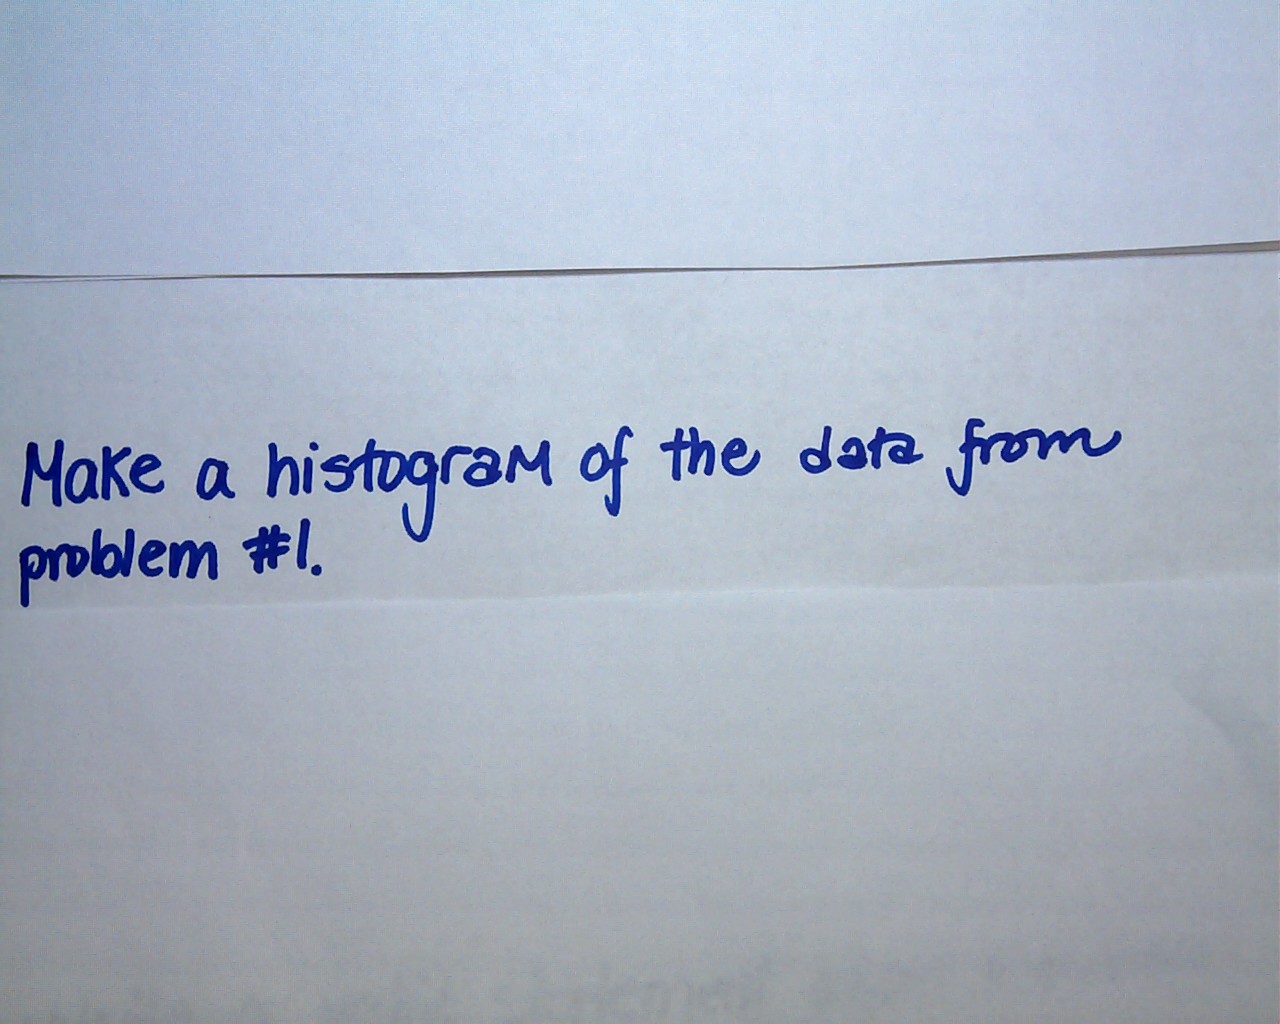 Make a histogram of the data from
problem #1.